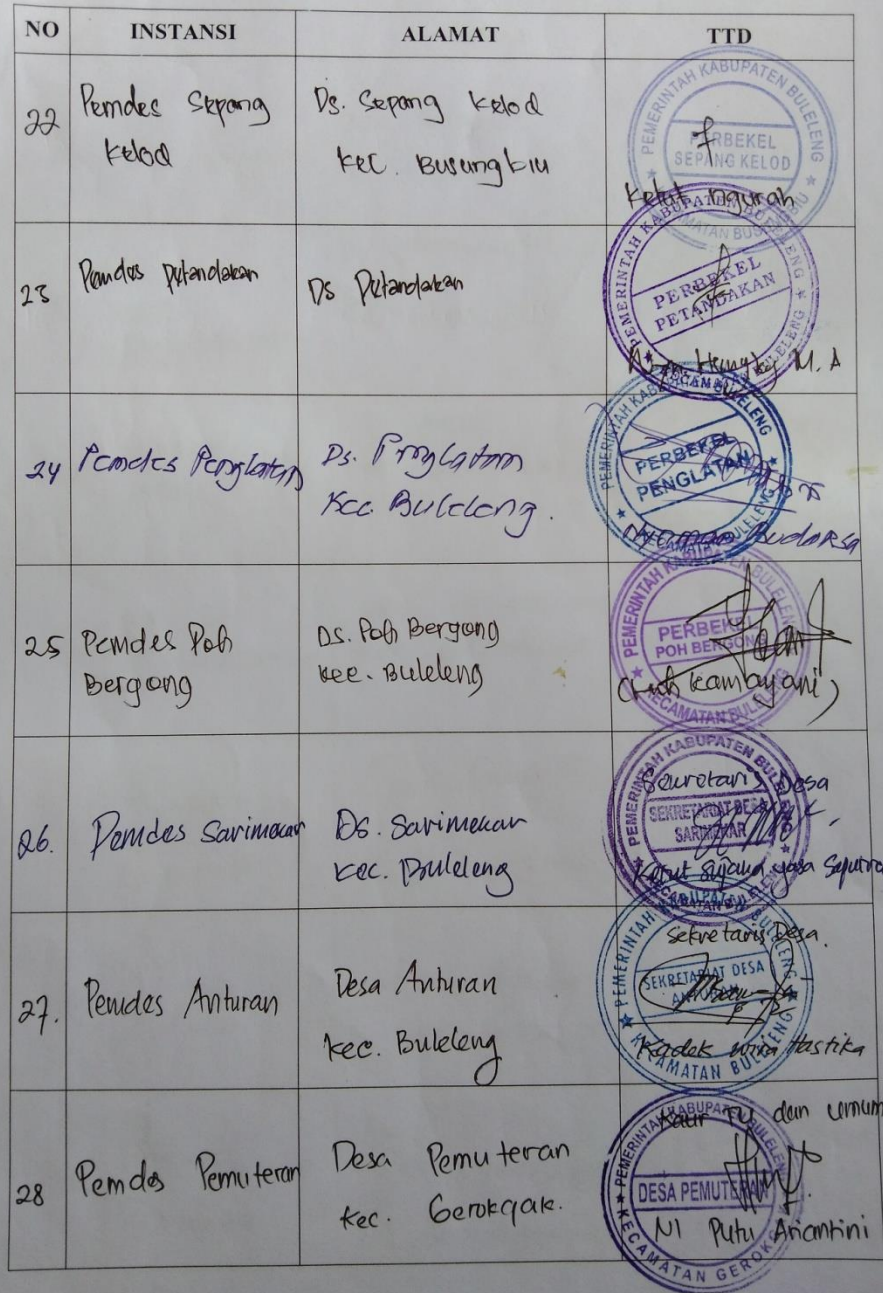 NO INSTANSI ALAMAT TTD
22 Pemdes Sepang Kelod
Ds. Sepang Kelod
Kec. Busungbiu
PEMERINTAH KABUPATEN BULELENG
PERBEKEL
SEPANG KELOD
Ketut Ngurah
23 Pemdes Petandakan
Ds Petandakan
PEMERINTAH KABUPATEN BULELENG
PERBEKEL
PETANDAKAN
KECAMATAN BULELENG
M. A
24 Pemdes Penglatan
Ds. Penglatan
Kec. Buleleng.
PEMERINTAH KABUPATEN BULELENG
PERBEKEL
PENGLATAN
KECAMATAN BULELENG
Nyoman Budarsa
25 Pemdes Poh
Bergong
Ds. Poh Bergong
Kec. Buleleng
PEMERINTAH KABUPATEN BULELENG
PERBEKEL
POH BERGONG
KECAMATAN BULELENG
(Luh Kambayani)
26. Pemdes Sarimekar
Ds. Sarimekar
Kec. Buleleng
PEMERINTAH KABUPATEN BULELENG
Secretaris Desa
SEKRETARIAT DESA
SARIMEKAR
Ketut yasa Saputra
KECAMATAN BULELENG
27. Pemdes Anturan
Desa Anturan
Kec. Buleleng
PEMERINTAH KABUPATEN BULELENG
Sekretaris Desa.
SEKRETARIAT DESA
ANTURAN
Kadek Wira Hastika
KECAMATAN BULELENG
28 Pemdes Pemuteran
Desa Pemuteran
Kec. Gerokgak.
PEMERINTAH KABUPATEN BULELENG
Kaur TU dan Umum
DESA PEMUTERAN
NI Putu Ariantini
KECAMATAN GEROKGAK